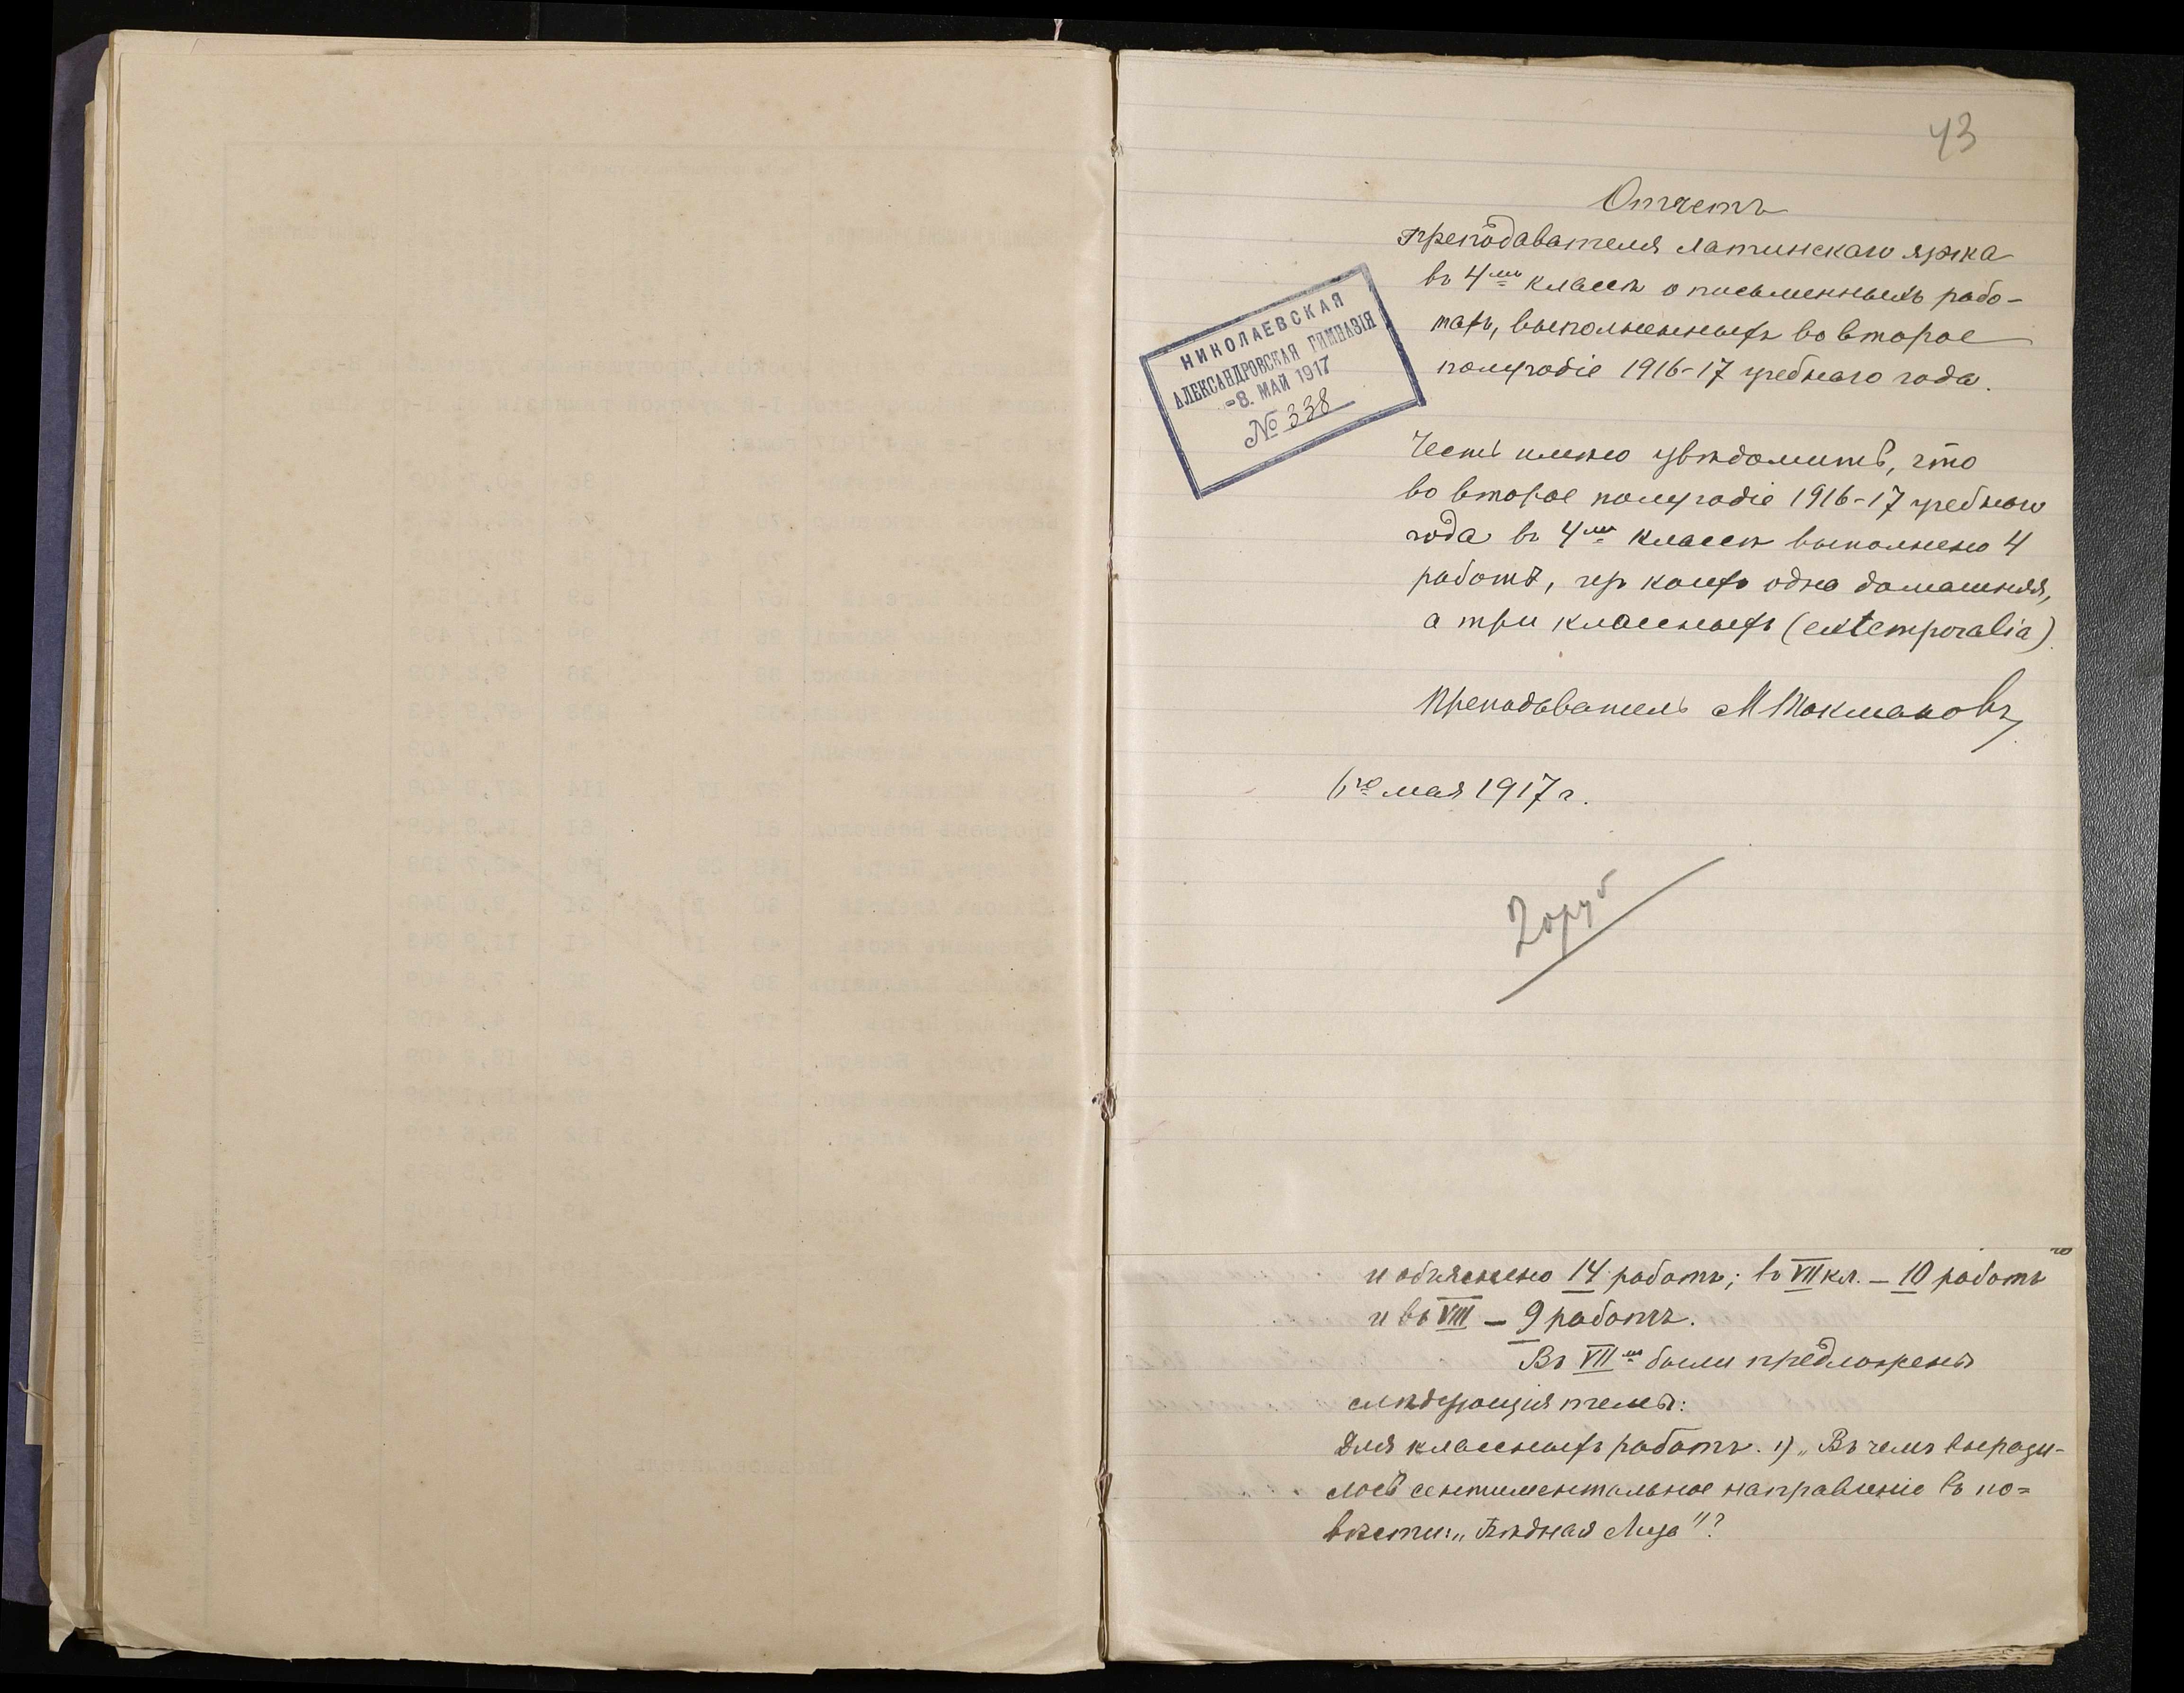 43
Отчетъ
преподавателя латинскаго языка
въ 4мъ классѣ о письменныхъ рабо-
тахъ, выполненныхъ во второе
полугодіе 1916-17 учебнаго года.
НИКОЛАЕВСКАЯ
АЛЕКСАНДРОВСКАЯ ГИМНАЗІЯ
-8. МАЙ 1917
№ 338
Честь имѣю увѣдомить, что
во второе полугодіе 1916-17 учебнаго
года въ 4мъ классѣ выполнено 4
работы, изъ коихъ одна домашняя,
а три классныхъ (extemporalia).
Преподаватель М Токмаковъ
6го мая 1917 г.
20 руб
и объяснено 14 работъ; въ VII кл. — 10 работъ
и въ VIII — 9 работъ.
Въ VIIмъ были предложены
слѣдующія темы:
Для классныхъ работъ. 1) „Въ чемъ вырази-
лось сентиментальное направленіе въ по=
вѣсти: „Бѣдная Лиза"?